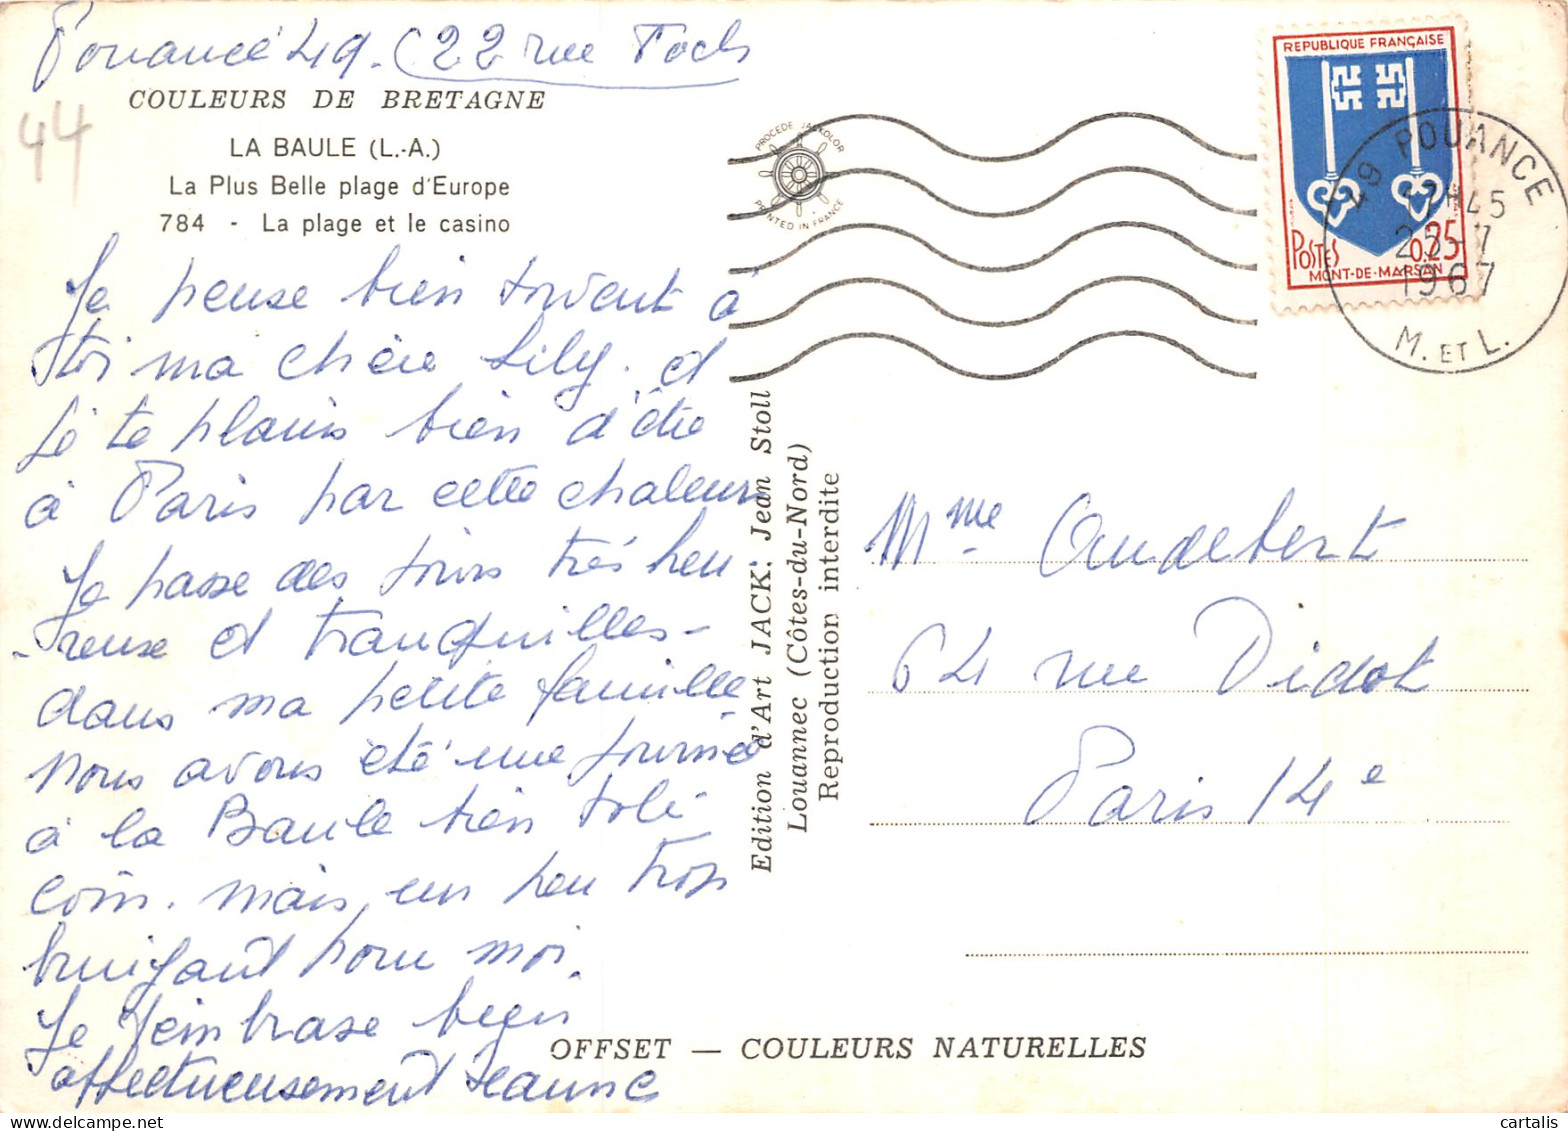 Pouancé 49. (22 rue Foch
44
COULEURS DE BRETAGNE
LA BAULE (L.-A.)
La Plus Belle plage d'Europe
784 - La plage et le casino
Je pense bien souvent à
toi ma chère Lily. et
je te plains bien d'être
à Paris par cette chaleur
Je passe des jours très heu
-reuse et tranquilles -
dans ma petite famille
nous avons été une journée
à la Baule bien joli
coin. mais un peu trop
bruyant pour moi.
Je t'embrasse bien
affectueusement Jeanne
PROCEDE JACKOLOR
PRINTED IN FRANCE
Edition d'Art JACK: Jean Stoll
Louannec (Côtes-du-Nord)
Reproduction interdite
REPUBLIQUE FRANÇAISE
POSTES 0,25
MONT-DE-MARSAN
49 POUANCE
17H45
25-7
1967
M. ET L.
Mme Audebert
64 rue Didot
Paris 14e
OFFSET — COULEURS NATURELLES
cartalis